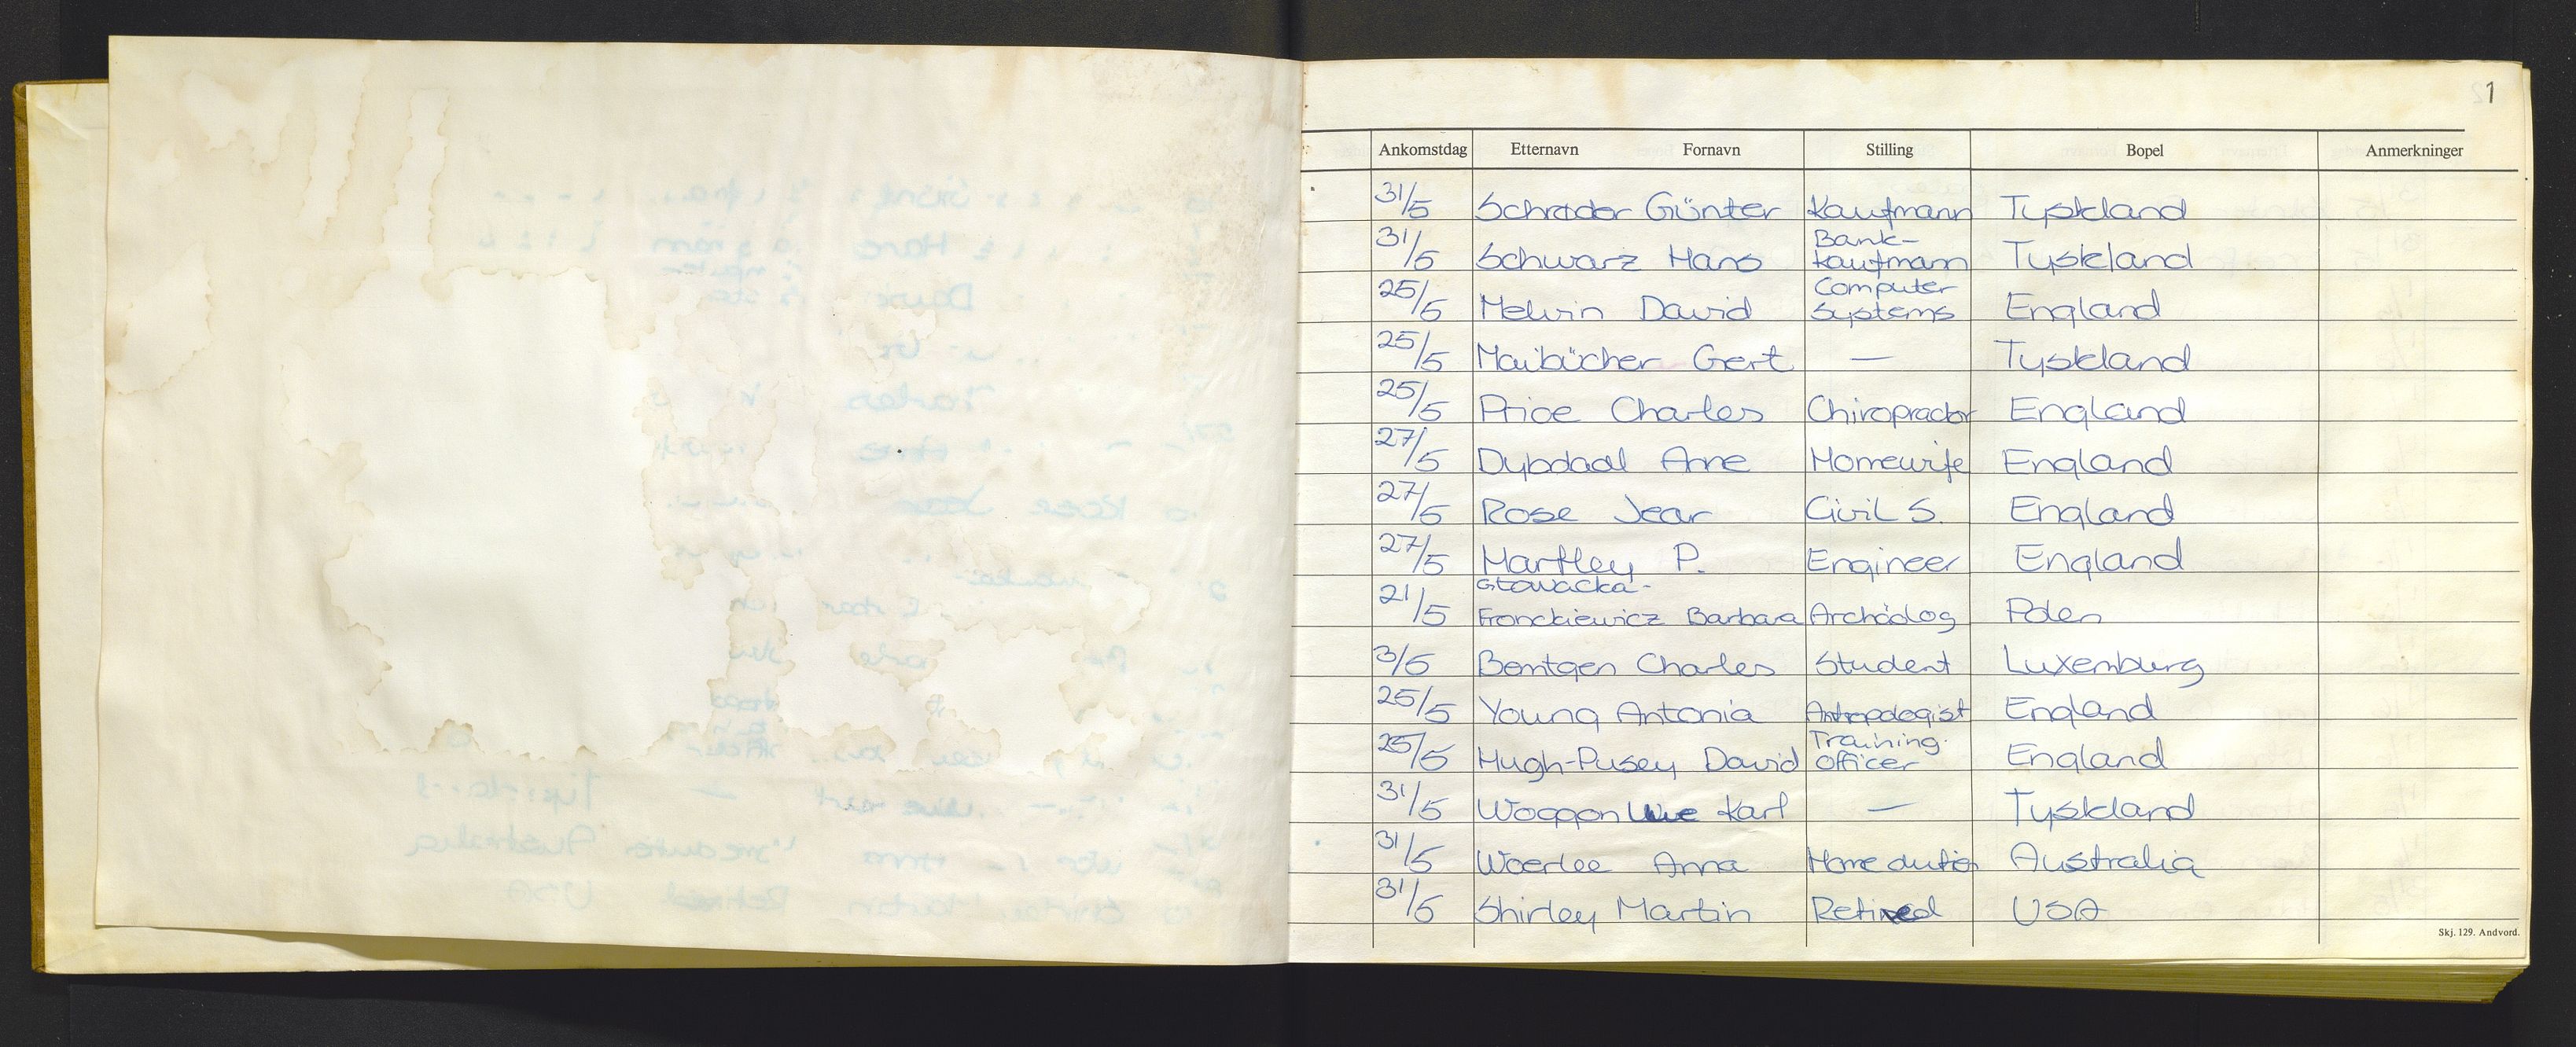 1
Ankomstdag Etternavn Fornavn Stilling Bopel Anmerkninger
31/5 Schrader Günter Kaufmann Tyskland
31/5 Schwarz Hans Bank-kaufmann Tyskland
25/5 Melvin David Computer Systems England
25/5 Maibücher Gert — Tyskland
25/5 Price Charles Chiropractor England
27/5 Dybdaal Anne Homewife England
27/5 Rose Jean Civil S. England
27/5 Hartley P. Engineer England
21/5 Glowacka-Fronckiewicz Barbara Archòolog Polen
3/5 Bentgen Charles Student Luxemburg
25/5 Young Antonia Antropologist England
25/5 Hugh-Pusey David Training Officer England
31/5 Woggon Uwe Karl — Tyskland
31/5 Woerlee Anna Home duties Australia
31/5 Shirley Martin Retired USA
Skj. 129. Andvord.